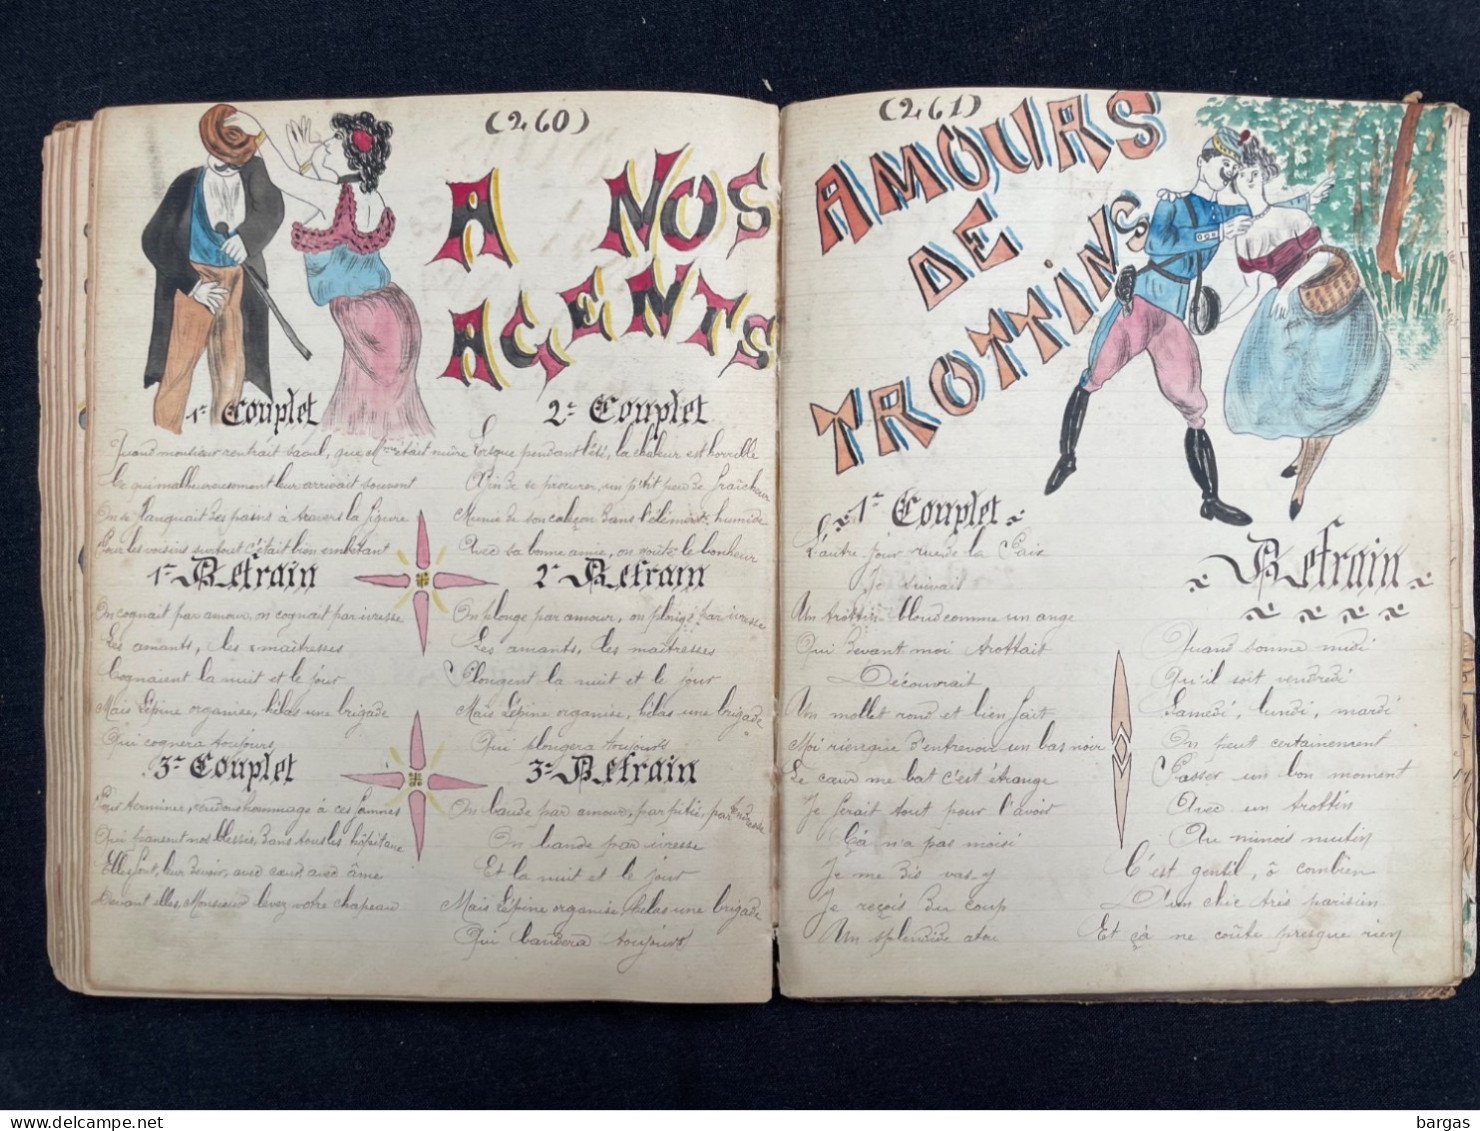 (260)
A NOS
AGENTS
1er Couplet
Quand monsieur rentrait saoul, que Mme était mûre
Ce qui malheureusement leur arrivait souvent
On se flanquait des pains à travers la figure
Pour les voisins surtout c'était bien embêtant
1er Refrain
On cognait par amour, on cognait par ivresse
Les amants, les maîtresses
Cognaient la nuit et le jour
Mais Lépine organise, hélas une brigade
Qui cognera toujours
3e Couplet
Pour terminer, rendons hommage à ces femmes
Qui pansent nos blessés dans tous les hôpitaux
Elles font, leur devoir, avec cœur avec âme
Devant elles Monsieur levez votre chapeau
2e Couplet
Lorsque pendant l'été, la chaleur est horrible
Afin de se procurer, un p'tit peu de fraîcheur
Munie de son caleçon dans l'élément humide
Avec sa bonne amie, on goûte le bonheur
2e Refrain
On plonge par amour, on plonge par ivresse
Les amants, les maîtresses
Plongent la nuit et le jour
Mais Lépine organise, hélas une brigade
Qui plongera toujours
3e Refrain
On bande par amour, par pitié, par tendresse
On bande par ivresse
Et la nuit et le jour
Mais Lépine organise, hélas une brigade
Qui bandera toujours
(261)
AMOURS
DE
TROTTINS
1er Couplet
L'autre jour rue de la Paix
Je suivais
Un trottin blond comme un ange
Qui devant moi trottait
Découvrait
Un mollet rond et bien fait
Moi rien que d'entrevoir un bas noir
Le cœur me bat c'est étrange
Je ferait tout pour l'avoir
Çà n'a pas moisi
Je me dis vas-y
Je reçois du coup
Un splendide atou
Refrain
Quand sonne midi
Qu'il soit vendredi
Samedi, lundi, mardi
On peut certainement
Passer un bon moment
Avec un trottin
Au minois mutin
C'est gentil, ô combien
D'un chic très parisien
Et çà ne coûte presque rien
delcampe.net
bargas